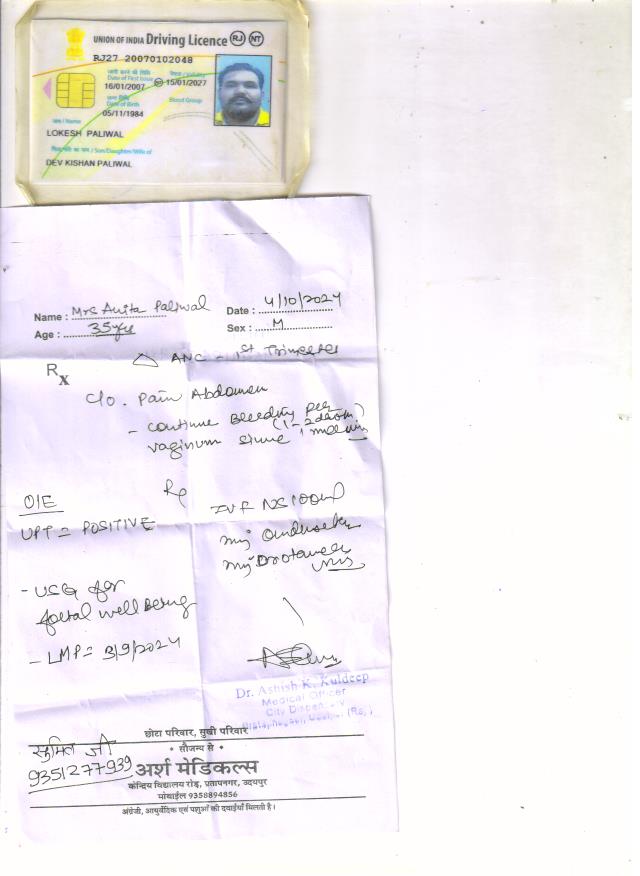 UNION OF INDIA Driving Licence RJ NT
RJ27 20070102048
जारी करने की तिथि
Date of First Issue
16/01/2007 15/01/2027
जन्म तिथि
Date of Birth Blood Group
05/11/1984
नाम / Name
LOKESH PALIWAL
Son/Daughter/Wife of
DEV KISHAN PALIWAL
Name : Mrs Anita Paliwal Date : 4/10/2024
Age : 35yr Sex : M
Rx
△ ANC - 1st Trimester
C/o. Pain Abdomen
- continue Bleeding per
vaginum since 1
O/E
UPT = POSITIVE
Rp
IVF NS 100ml
inj
inj
- USG for
foetal well Being
- LMP = 3/9/2024
Dr. Ashish K. Kuldeep
Medical Officer
City
छोटा परिवार, सुखी परिवार
• सौजन्य से •
जी
9351277939
अर्श मेडिकल्स
केन्द्रिय विद्यालय रोड़, प्रतापनगर, उदयपुर
मोबाईल 9358894856
अंग्रेजी, आयुर्वेदिक एवं पशुओं की दवाईयाँ मिलती है।